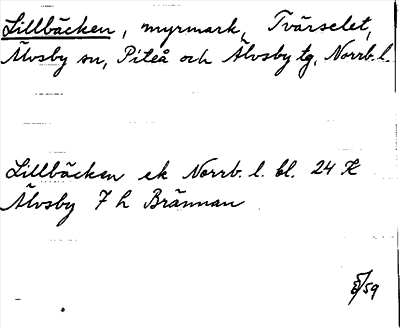 Lillbäcken, myrmark, Tvärselet,
Älvsby sn, Piteå och Älvsby tg, Norrb. l.
Lillbäcken ek Norrb. l. bl. 24
Älvsby 7 h Brännan
/59